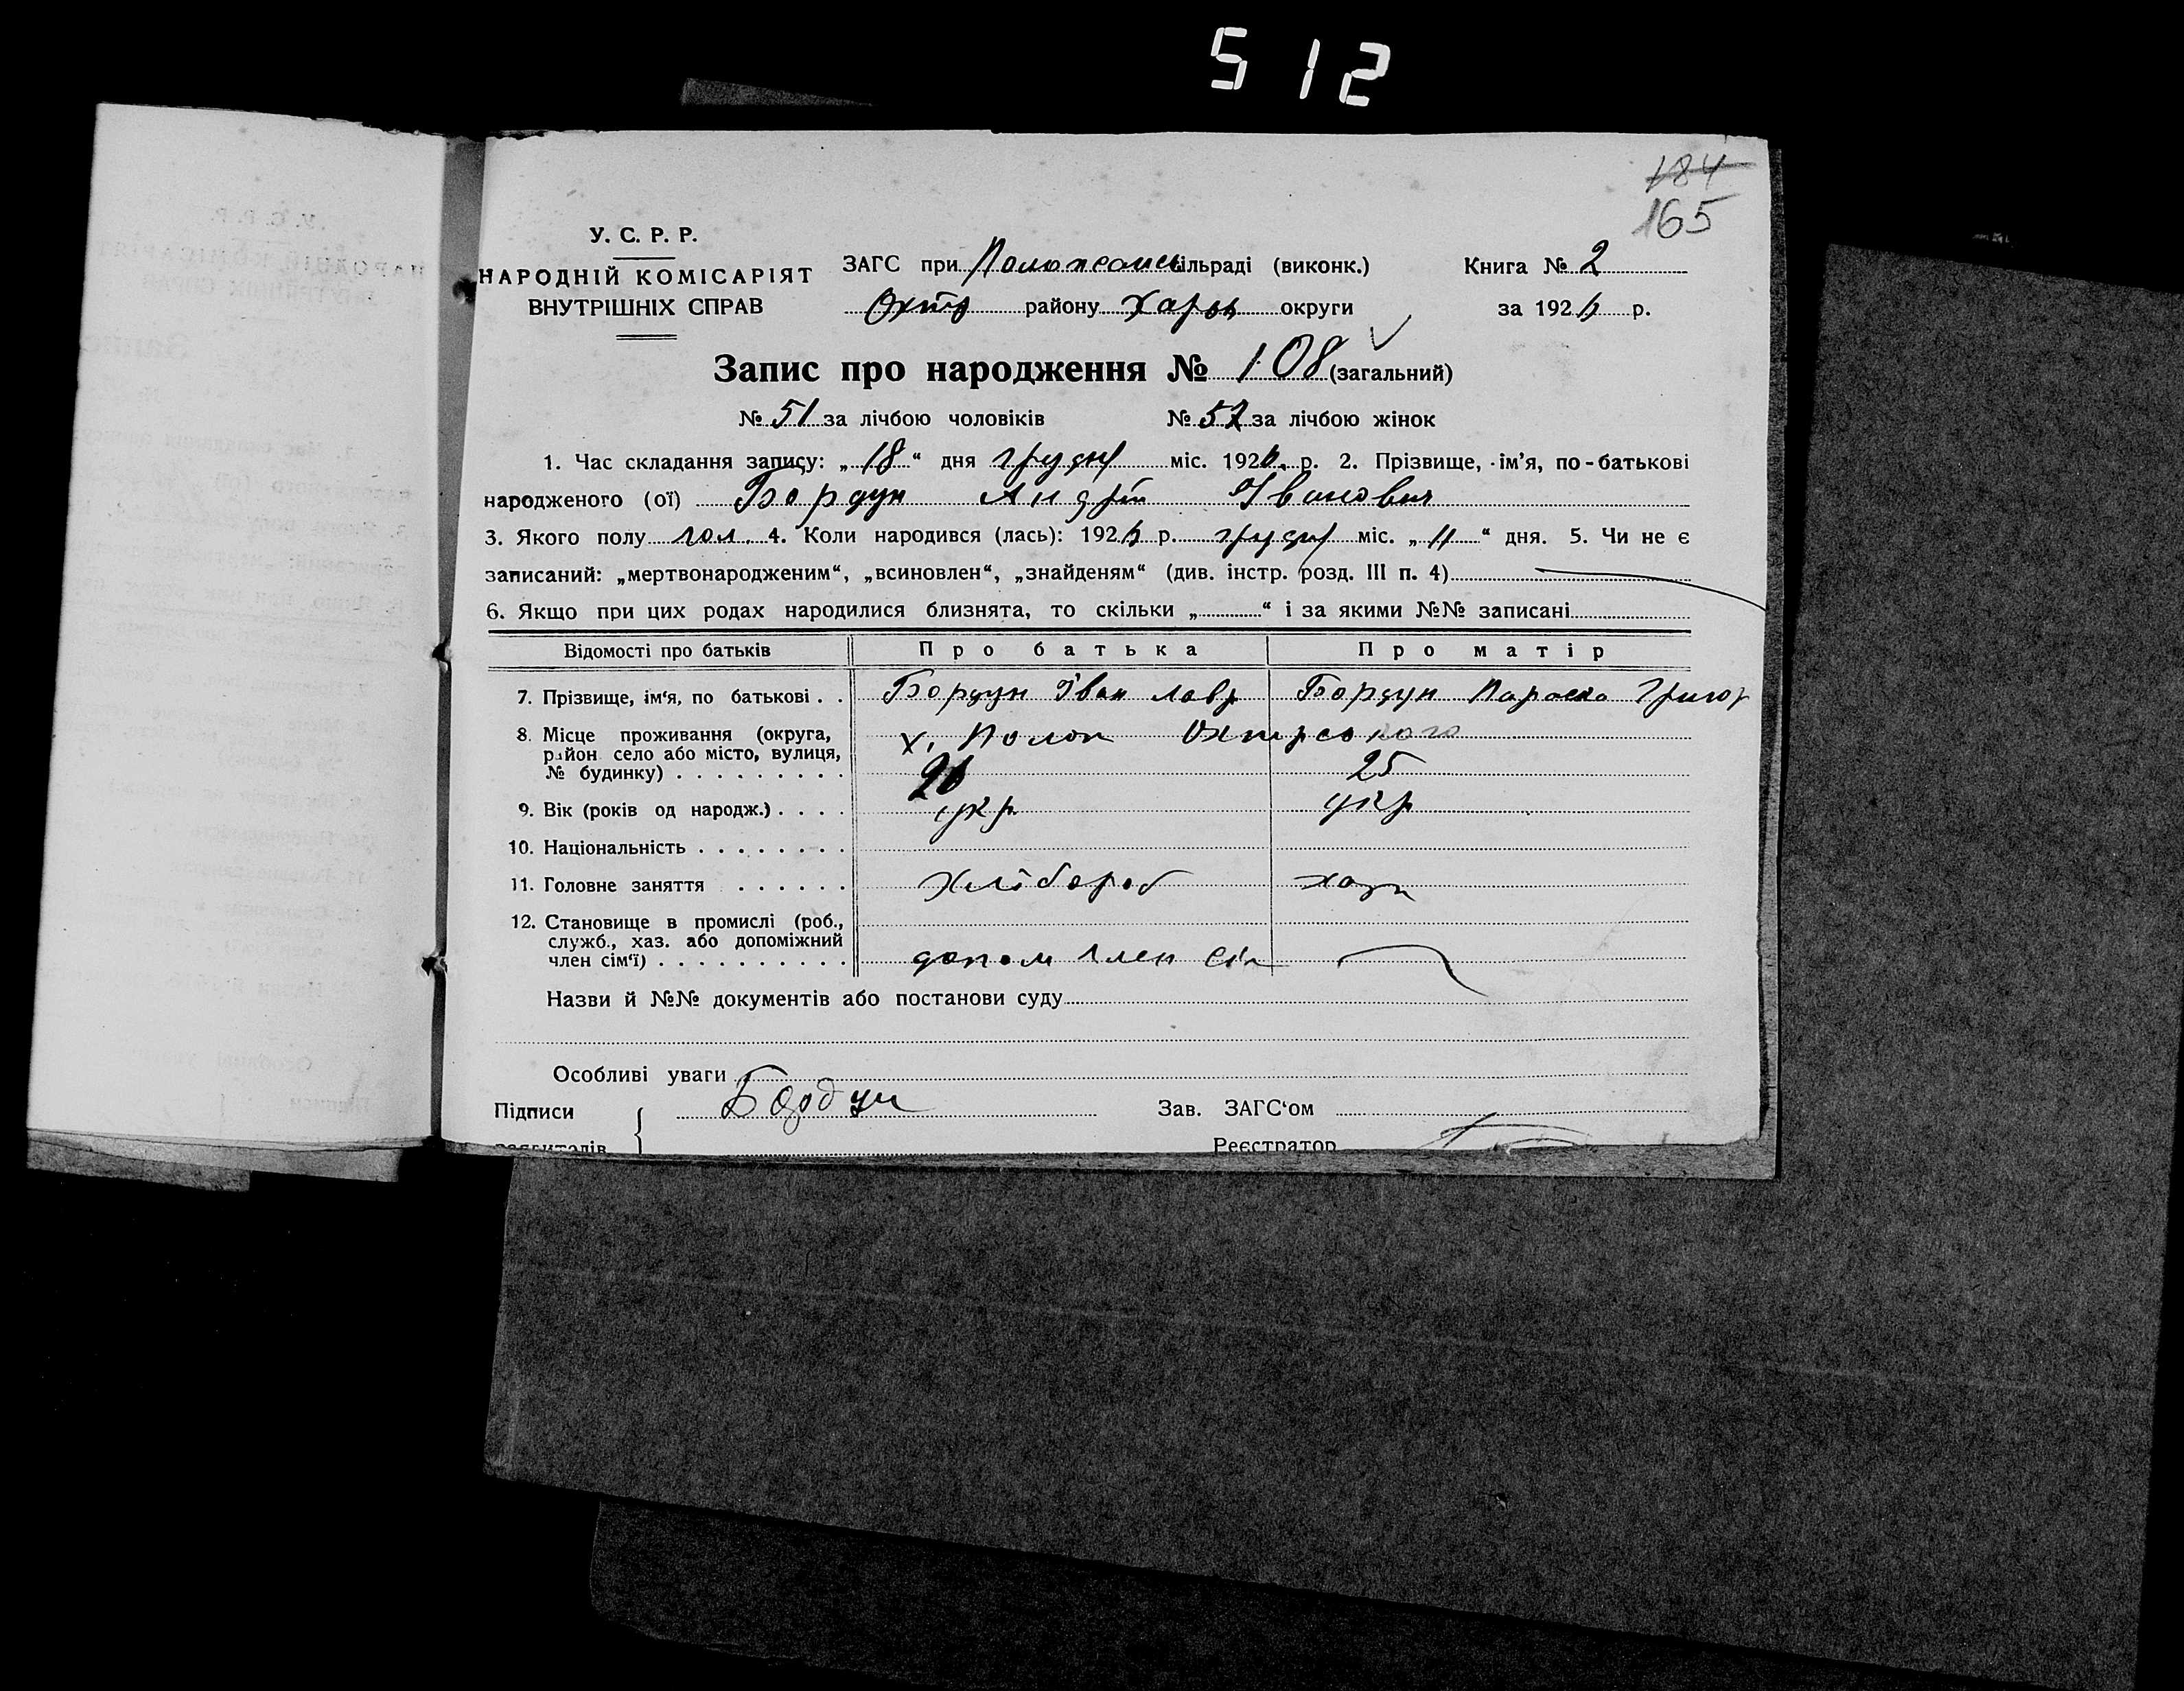 512
184
165
У. С. Р. Р.
НАРОДНІЙ КОМІСАРІЯТ
ВНУТРІШНІХ СПРАВ
ЗАГС при сільраді (виконк.)
Охт района Харьк округи
Книга № 2
за 1926 р.
Запис про народження № 108 (загальний)
№ 51 за лічбою чоловіків № 57 за лічбою жінок
1. Час складання запису: „18“ дня грудня міс. 1926 р. 2. Прізвище, ім’я, по-батькові
народженого (ої) Бордун Андрій Іванович
3. Якого полу чол. 4. Коли народився (лась): 1926 р. грудня міс. „11“ дня. 5. Чи не є
записаний: „мертвонародженим“, „всиновлен“, „знайденям“ (див. інстр. розд. III п. 4)
6. Якщо при цих родах народилися близнята, то скільки „ “ і за якими №№ записані
Відомості про батьків Про батька Про матір
7. Прізвище, ім‘я, по батькові . . Бордун Іван Лавр Бордун Параска Григор
8. Місце проживання (округа, х.
район село або місто, вулиця,
№ будинку) . . . . . . . . . 26 25
9. Вік (років од народж.) . . . . укр укр
10. Національність . . . . . . . .
11. Головне заняття . . . . . . Хлібороб хазя
12. Становище в промислі (роб.,
служб., хаз. або допоміжний
член сім‘ї) . . . . . . . . . . допом член сім
Назви й №№ документів або постанови суду
Особливі уваги
Підписи { Бордун Зав. ЗАГС‘ом
заявителів Реєстратор